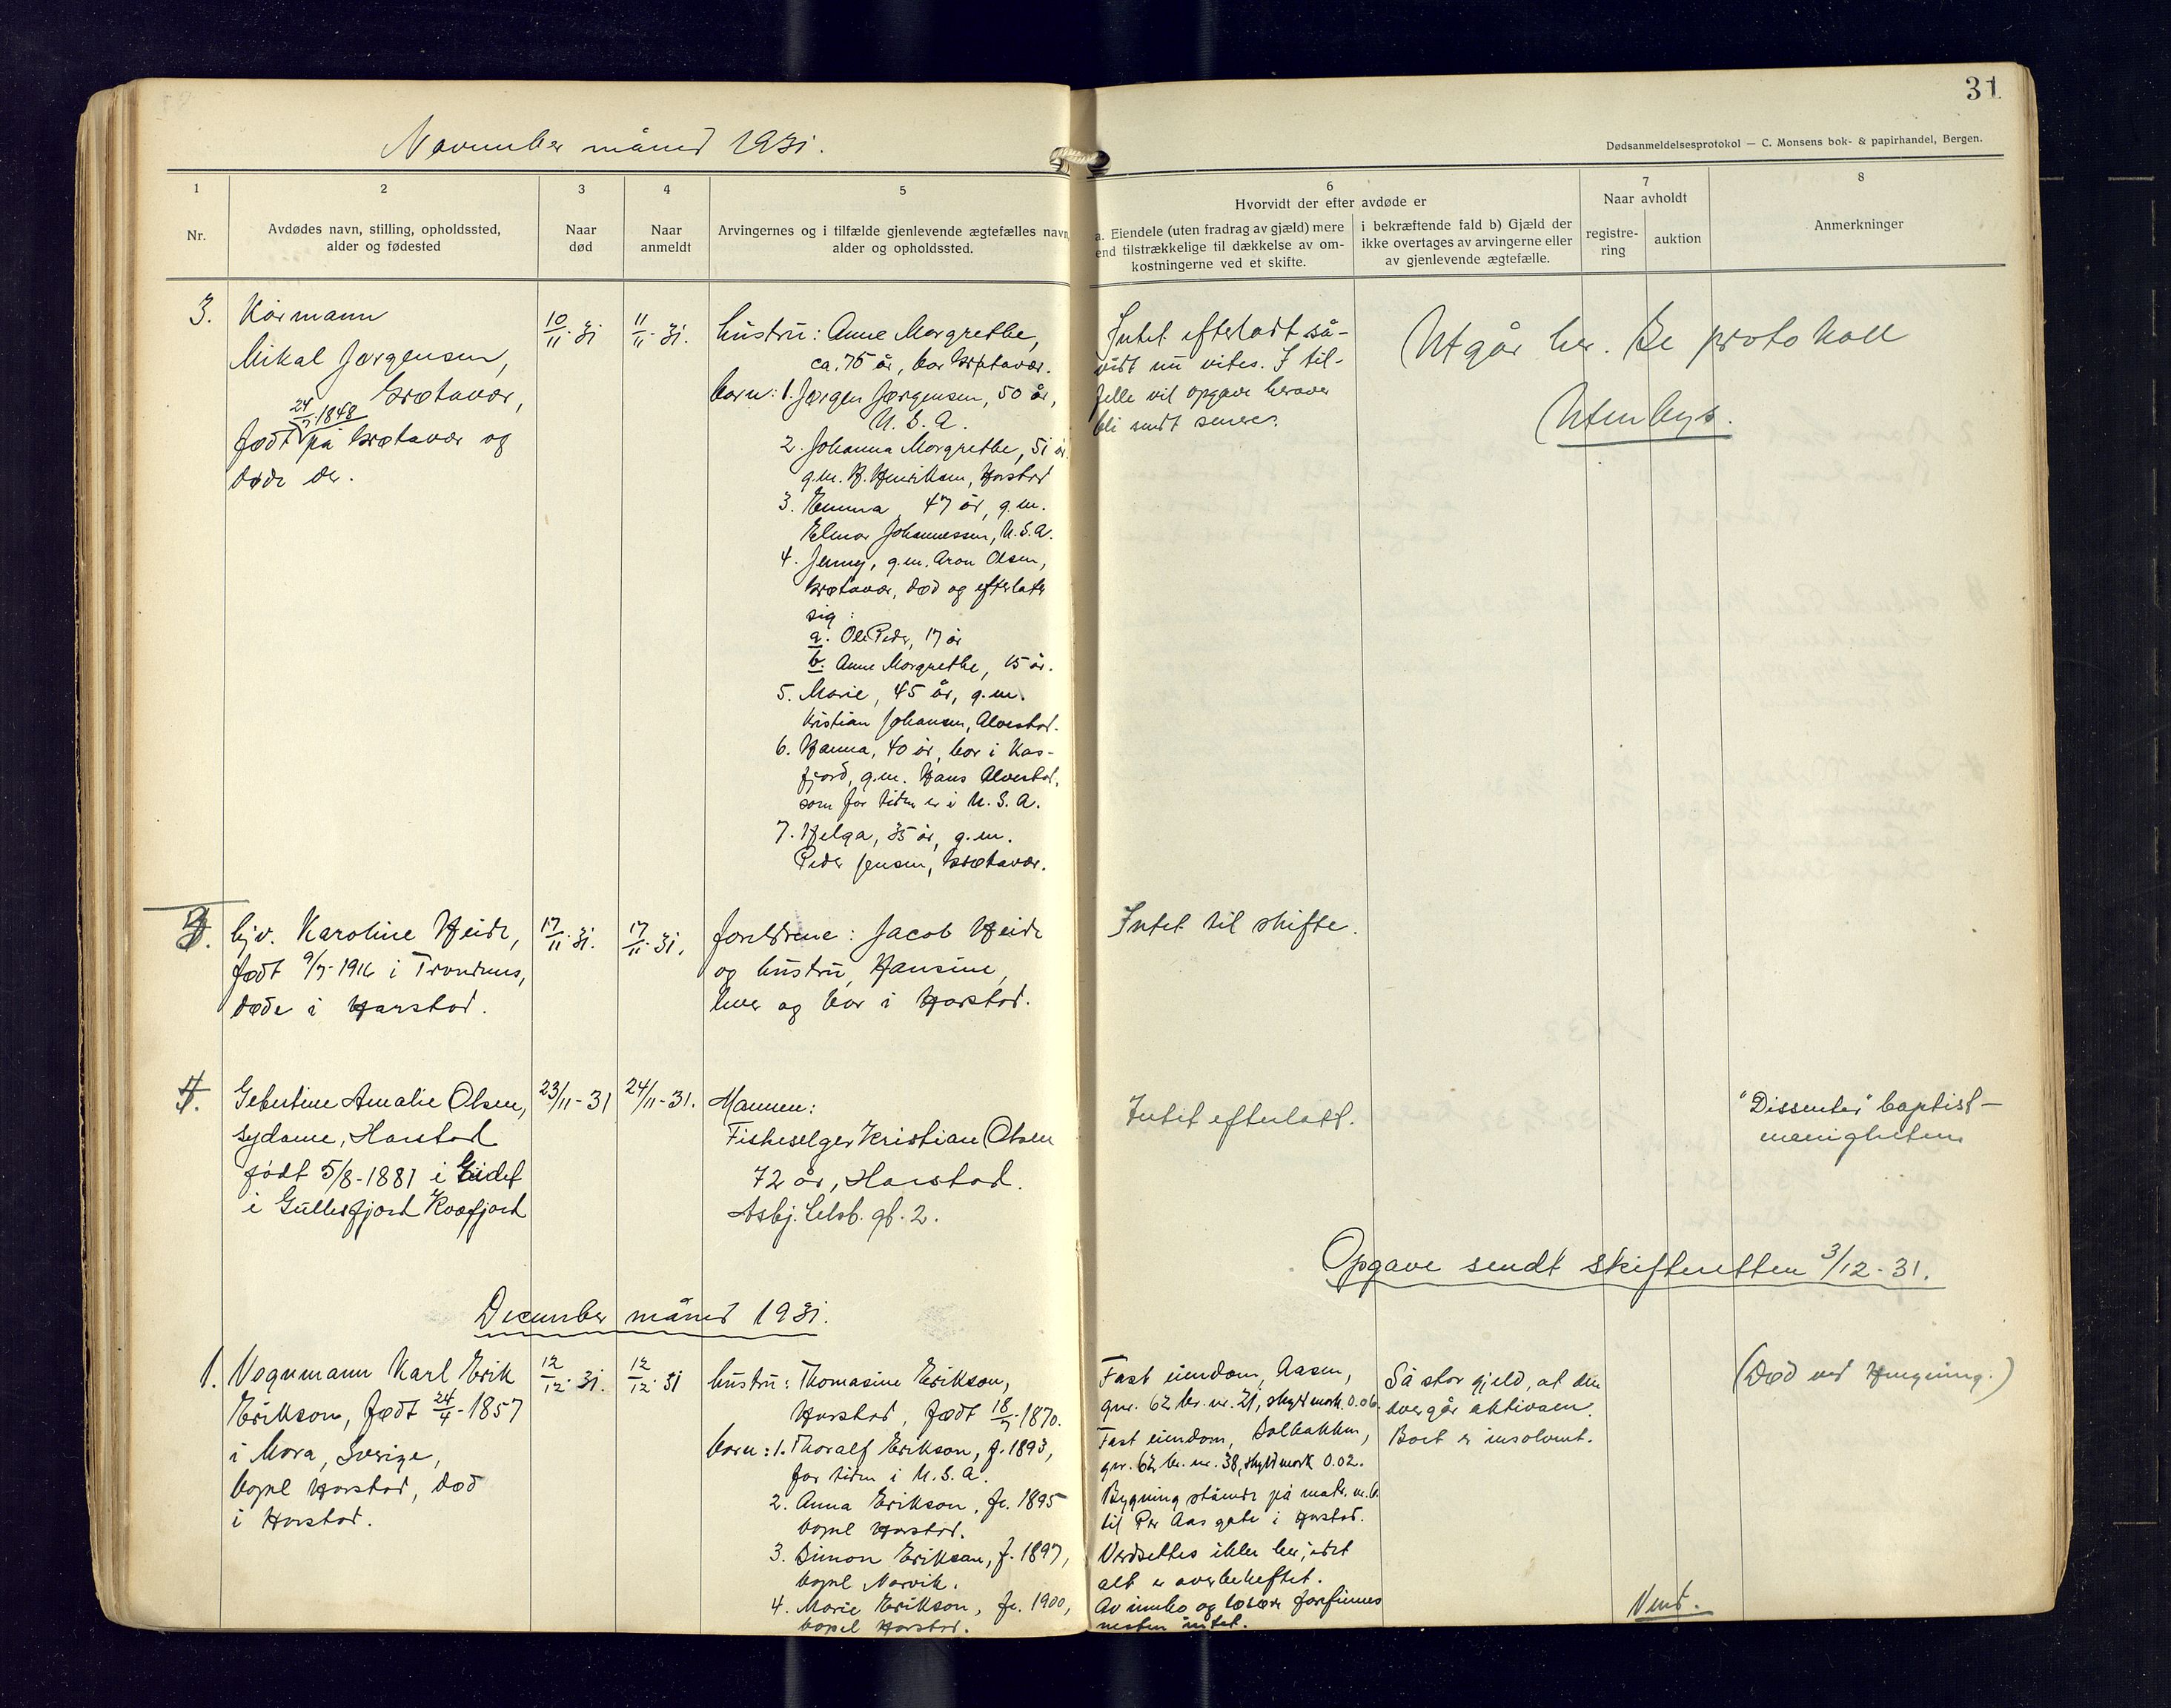 31
November måned 1931.
Dødsanmeldelsesprotokol — C. Monsens bok- & papirhandel, Bergen.
1
Nr.
2
Avdødes navn, stilling, opholdssted,
alder og fødested
3
Naar
død
4
Naar
anmeldt
5
Arvingernes og i tilfælde gjenlevende ægtefælles navn
alder og opholdssted.
6
Hvorvidt der efter avdøde er
a. Eiendele (uten fradrag av gjæld) mere
end tilstrækkelige til dækkelse av om-
kostningerne ved et skifte.
i bekræftende fald b) Gjæld der
ikke overtages av arvingerne eller
av gjenlevende ægtefælle.
7
Naar avholdt
registre-
ring
auktion
8
Anmerkninger
3.
Kårmann
Mikal Jørgensen,
Grøtavær,
24/7-1848
født på Grøtavær og
døde der.
10/11-31
11/11-31.
hustru: Anne Margrethe,
ca. 75 år, bor Grøtavær.
barn: 1. Jørgen Jørgensen, 50 år,
U.S.A.
2. Johanna Margrethe, 51 år.
g.m. H. Henriksen, Harstad
3. Emma, 47 år, g.m.
Elmar Johannessen, U.S.A.
4. Jenny, g.m. Aron Olsen,
Grøtavær, død og efterlater
sig:
a. Ole Peder, 17 år
b. Anne Margrethe, 15 år.
5. Marie, 45 år, g.m.
Kristian Johansen, Alvestad.
6. Hanna, 40 år, bor i Kas-
fjord, g.m. Hans Alvestad,
som for tiden er i U.S.A.
7. Helga, 35 år, g.m.
Peder Jensen, Grøtavær.
Intet efterladt så-
vidt nu vites. I til-
felle vil opgave herover
bli sendt senere.
Utgår her. Se protokoll
Utenbys.
3.
bjv. Karoline Heide,
født 9/7-1916 i Trondenes,
døde i Harstad.
17/11-31.
17/11-31.
foreldrene: Jacob Heide
og hustru, Hansine,
lever og bor i Harstad.
Intet til skifte.
4.
Gebertine Amalie Olsen,
sydame, Harstad
født 5/8-1881 i Eidet
i Gullesfjord Kvæfjord
23/11-31
24/11-31.
Mannen:
Fiskeselger Kristian Olsen
72 år, Harstad.
Asbj. Selsb. gt. 2.
Intet efterlatt.
"Dissenter" baptist-
menigheten
Opgave sendt skifteretten 3/12-31.
December måned 1931.
1.
Vognmann Karl Erik
Erikson, født 24/4-1857
i Mora, Sverige,
bopel Harstad, død
i Harstad.
12/12-31.
12/12-31
hustru: Thomasine Erikson,
Harstad, født 18/7-1870.
barn: 1. Thoralf Erikson, f. 1893,
for tiden i U.S.A.
2. Anna Erikson, f. 1895
bopel Harstad.
3. Simon Erikson, f. 1897,
bopel Narvik.
4. Marie Erikson, f. 1900,
bopel Harstad.
Fast eiendom, Aasen,
gnr. 62 br. nr. 21, skyldmark 0.06.
Fast eiendom, Solbakken,
gnr. 62 br. nr. 38, skyldmark 0.02.
Bygning stående på matr. nr. 6.
til Per Aas gate i Harstad.
Verdsettes ikke her, idet
alt er overbeheftet.
Av innbo og løsøre forefinnes
nesten intet.
Så stor gjeld, at den
overgår aktivaen.
Boet er insolvent.
(Død ved Hengning.)
Vend.